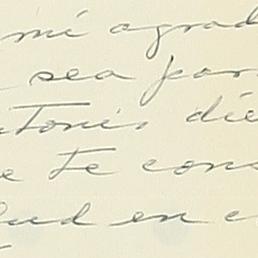 mi agrad
sea par
ntonio die
e te cons
lud en c